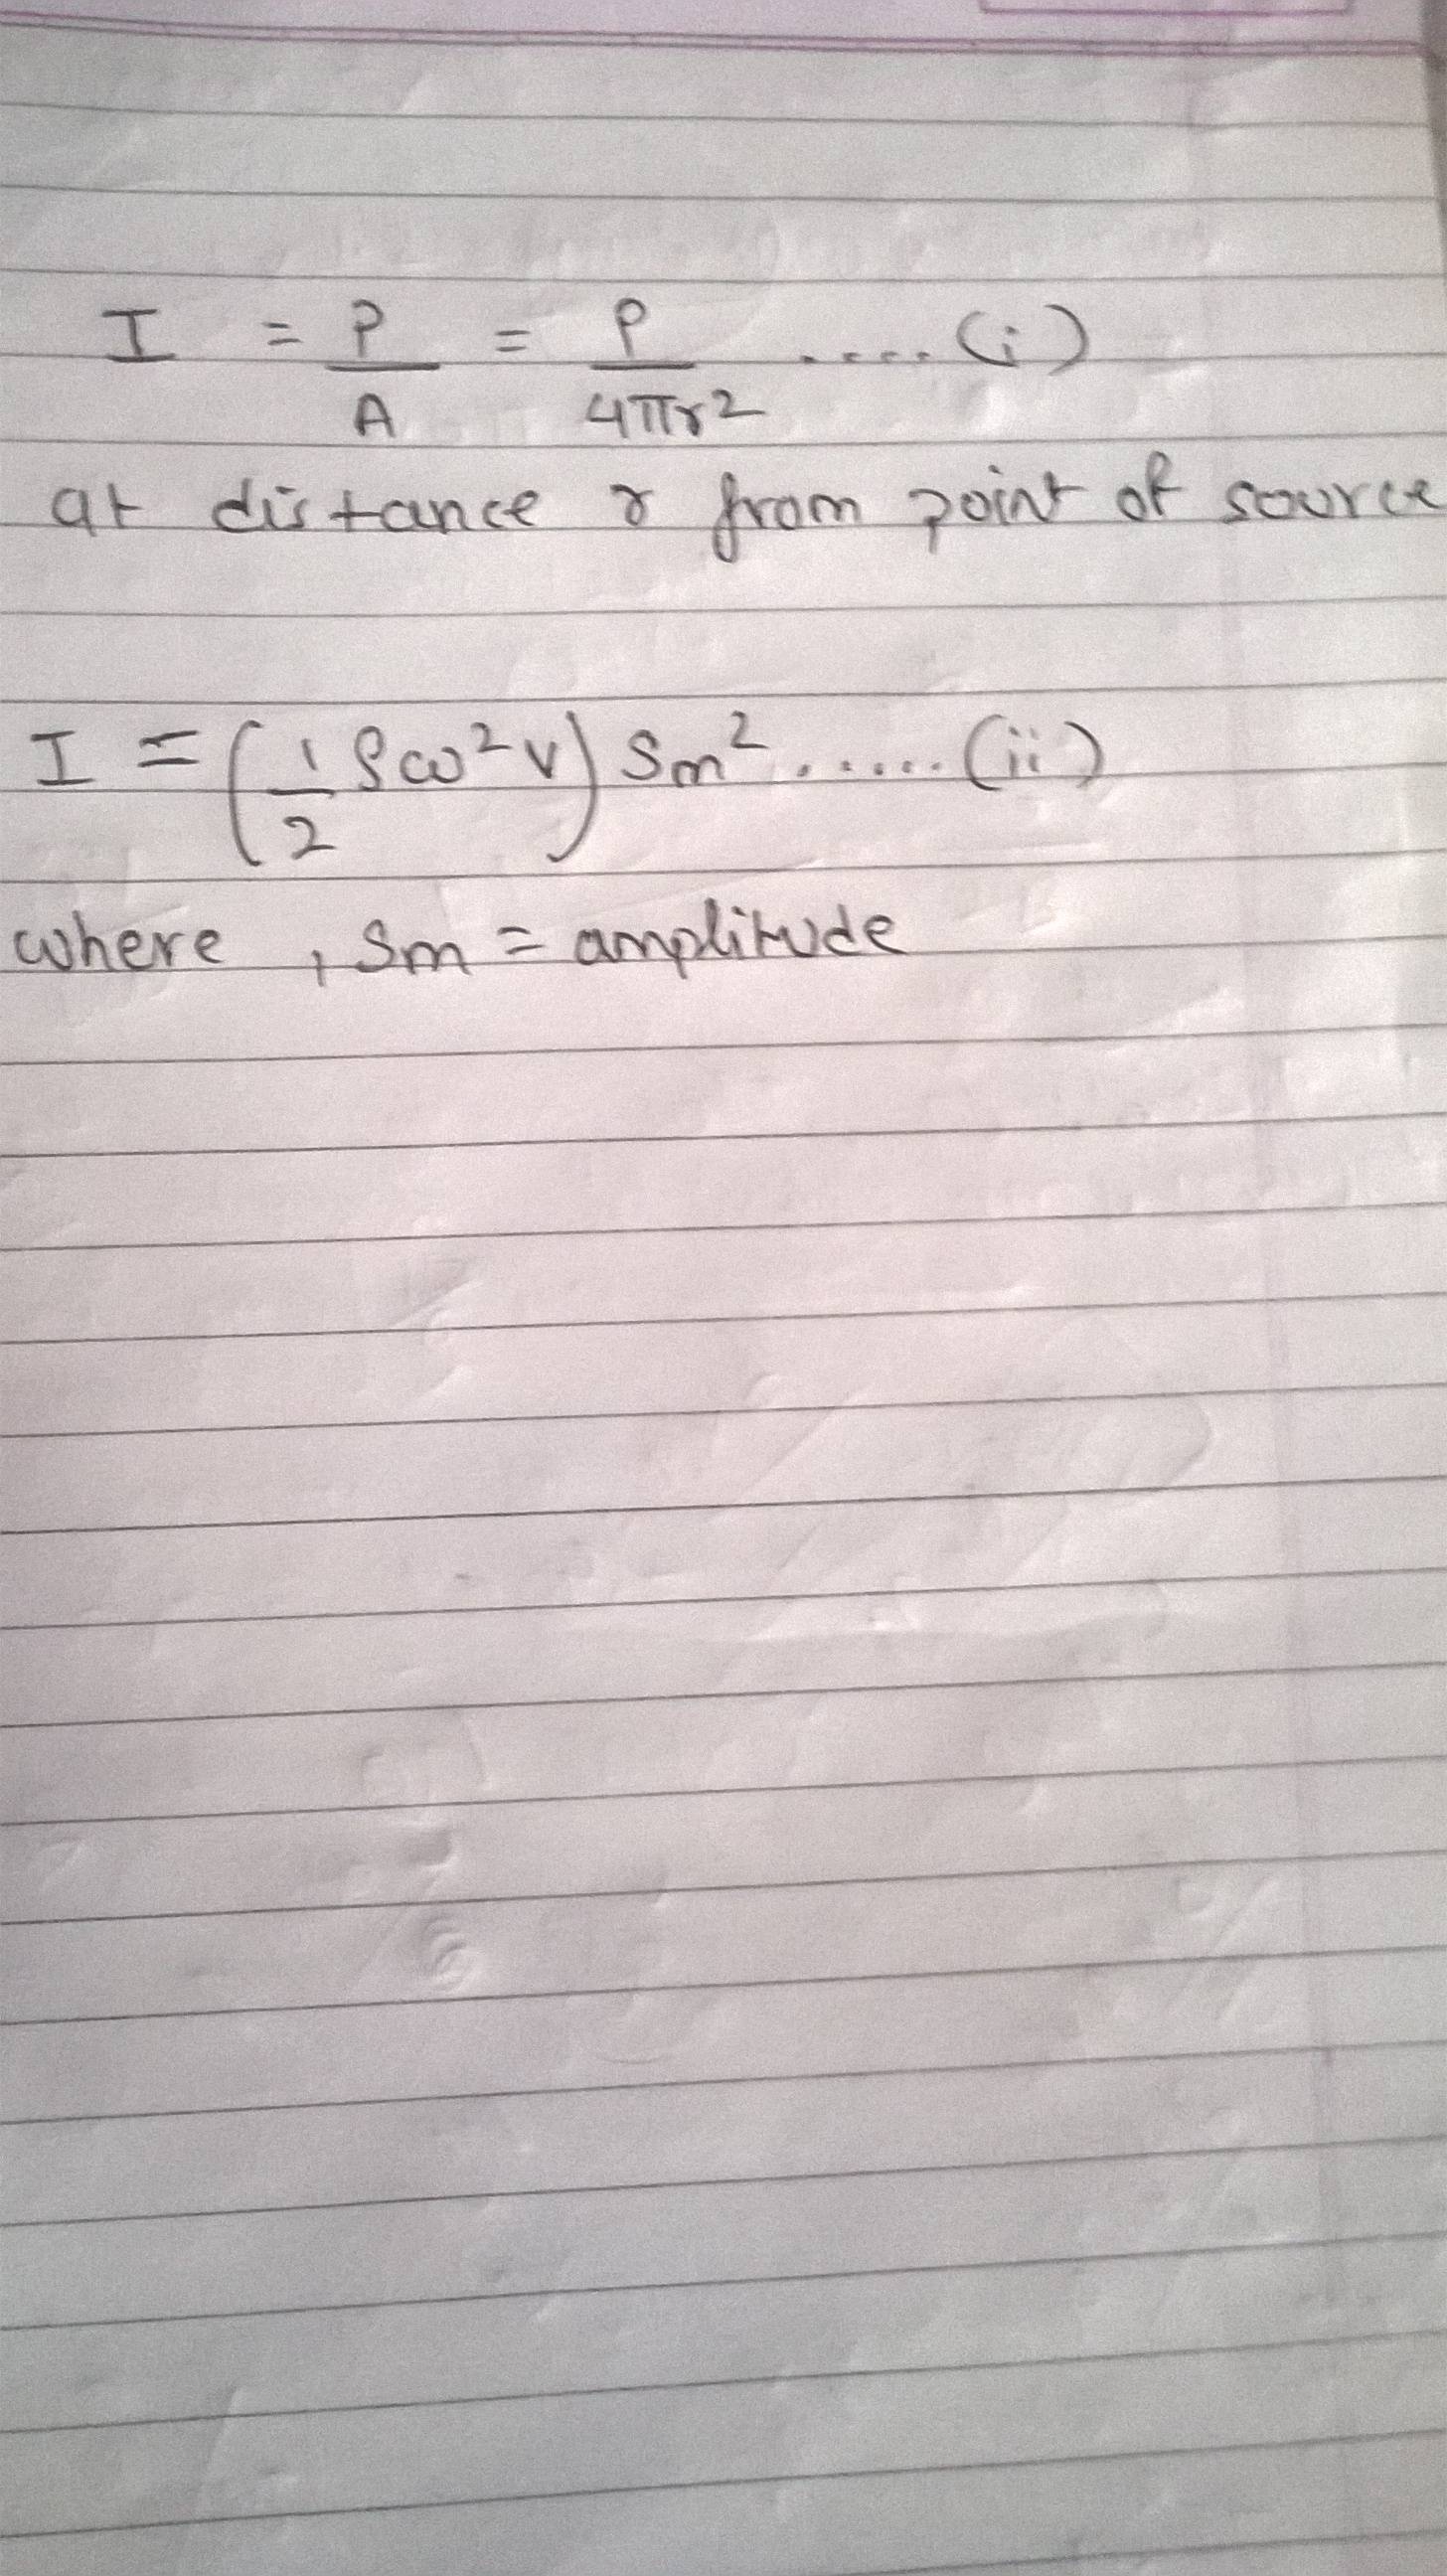 I = P/A = P/4πr2 ..... (i)
at distance r from point of source
I = (1/2 ρω²v) Sm² ...... (ii)
where , Sm = amplitude